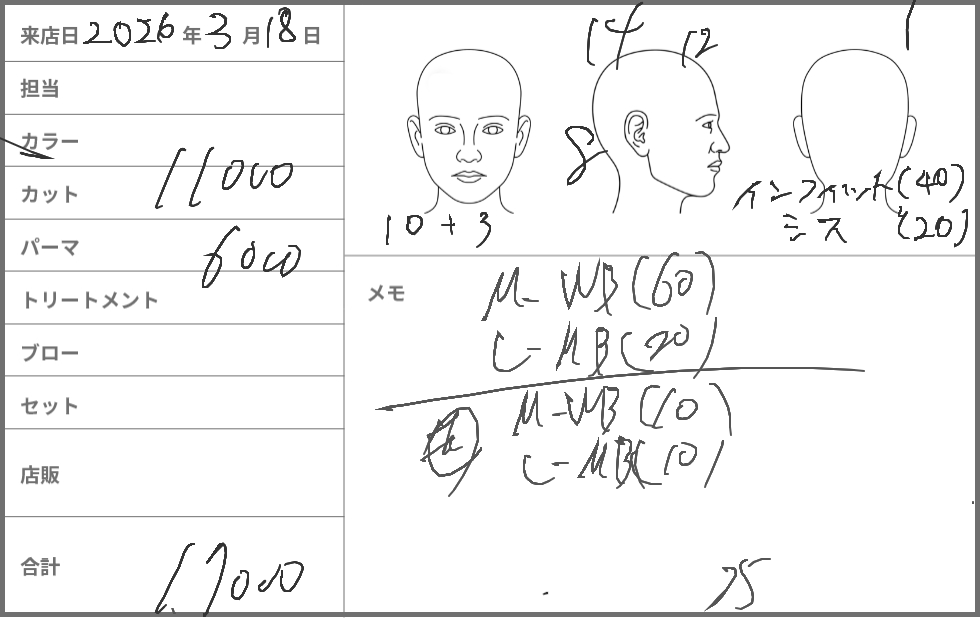 来店日 2026 年 3 月 18 日
担当
カラー
11000
カット
パーマ
6000
トリートメント
ブロー
セット
店販
合計
17000
14
12
8
10 + 3
インフィニット (40)
ミス (20)
メモ
M-WB (60)
C-MB (20)
M-WB (10)
C-MB (10)
75